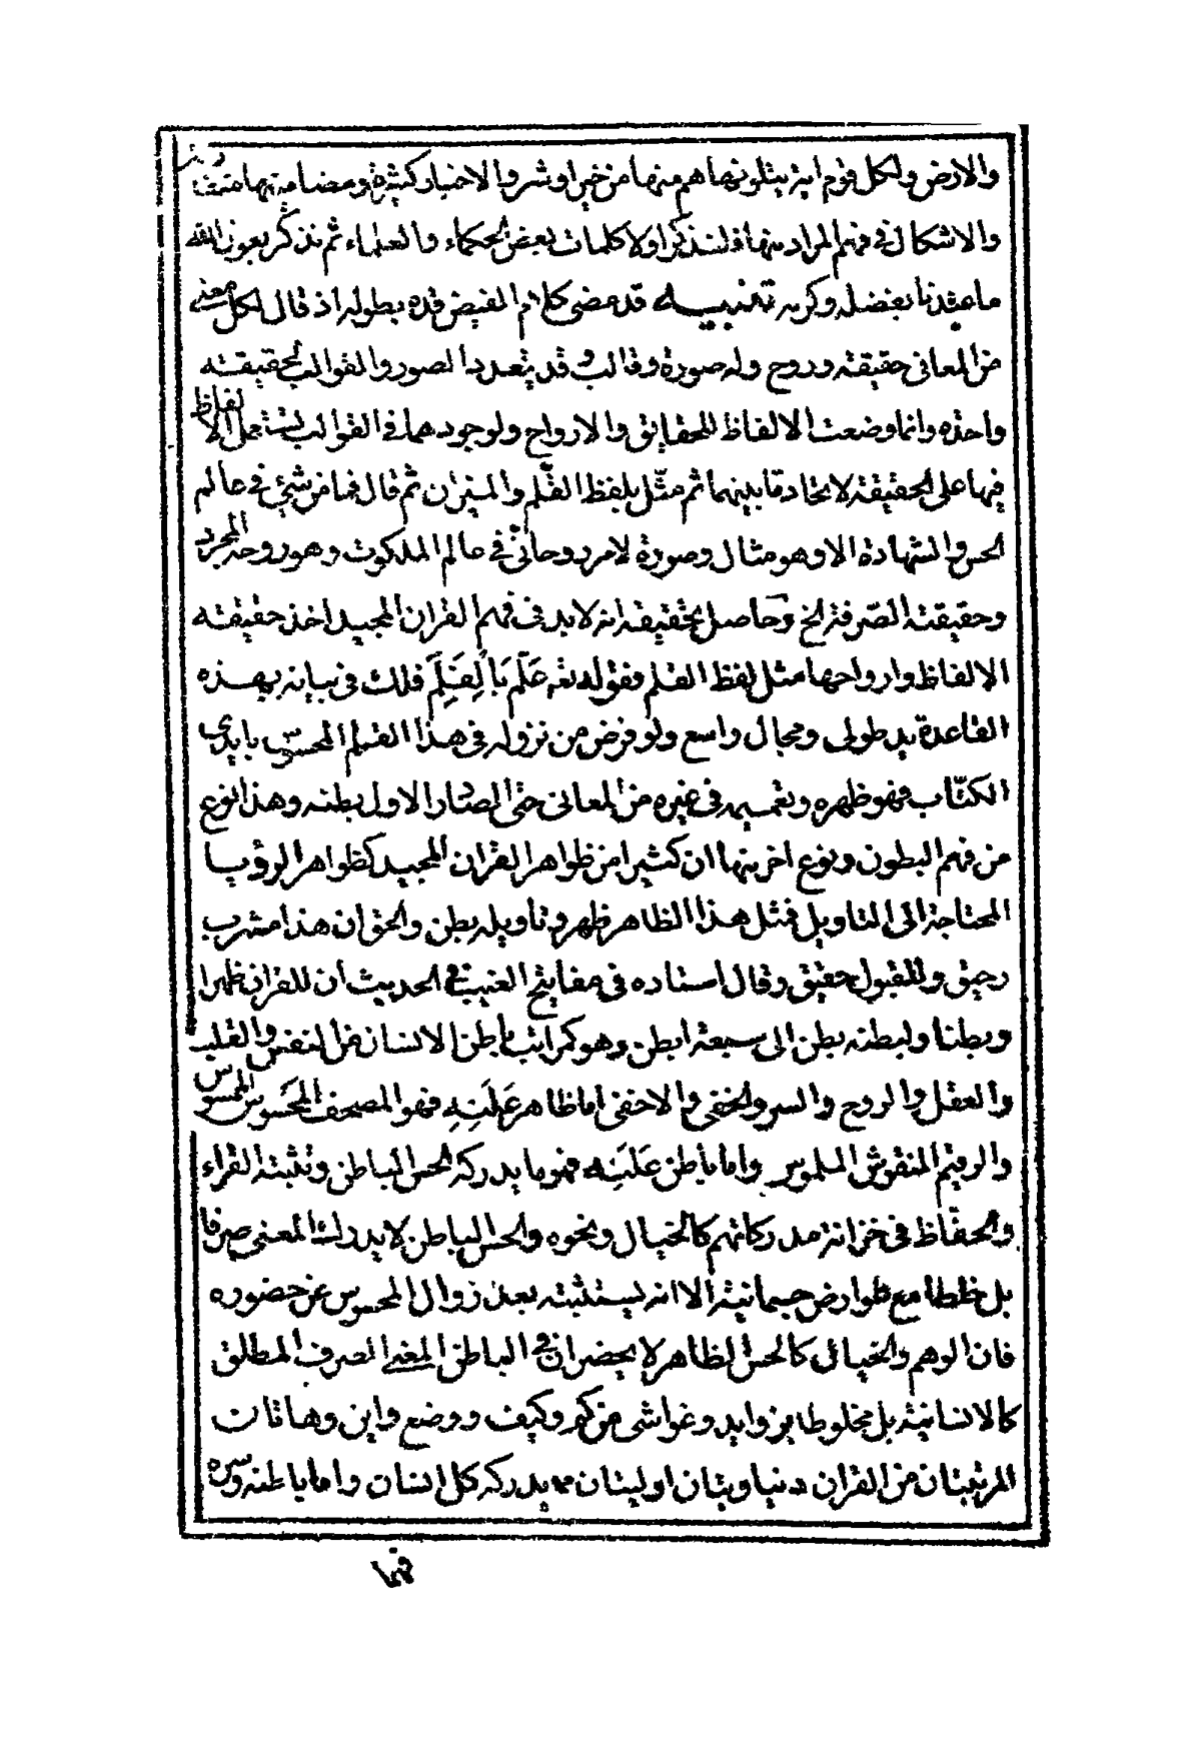 والارض ولكل قوم اية يتلونها هم منها من خير او شر والاخبار كثيرة ومضامينها متقاربة
والاشكال في فهم المراد منها فلنذكر اولا كلمات بعض الحكماء والعلماء ثم نذكر بعون الله
ما عندنا بفضله وكرمه تنبيه قد مضى كلام الفيض قده بطوله اذ قال لكل معنى
من المعاني حقيقة وروح وله صورة وقالب وقد يتعدد الصور والقوالب لحقيقة
واحدة وانما وضعت الالفاظ للحقايق والارواح ولوجودهما في القوالب تستعمل الالفاظ
فيها على الحقيقة لاتحاد ما بينهما ثم مثّل بلفظ القلم والميزان ثم قال فما من شئ في عالم
الحس والشهادة الا وهو مثال وصورة لامر روحاني في عالم الملكوت وهو روحه المجرد
وحقيقته الصرفة الخ وحاصل تحقيقه انه لابد في فهم القران المجيد اخذ حقيقة
الالفاظ وارواحها مثل لفظ القلم فقوله تعه عَلَّمَ بِالْقَلَمِ فلك في بيانه بهذه
القاعدة يد طولى ومجال واسع ولو فرض من نزوله في هذا القلم المحسوس بايدي
الكتّاب فهو ظهره وتعميمه في غيره من المعاني حتى الصادر الاول بطنه وهذا نوع
من فهم البطون ونوع اخر منها ان كثيرا من ظواهر القران المجيد كظواهر الرؤيا
المحتاجة الى التاويل فمثل هذا الظاهر ظهر وتاويله بطن والحق ان هذا مشرب
رحيق وللقبول حقيق وقال استاده في مفاتيح الغيب في الحديث ان للقران ظهرا
وبطنا ولبطنه بطن الى سبعة ابطن وهو كمراتب باطن الانسان من النفس والقلب
والعقل والروح والسر والخفي والاخفى اما ظاهر عَلَنِه فهو المصحف المحسوس الملموس
والرقيم المنقوش الملموس واما باطن عَلَنِه فهو ما يدركه الحس الباطن وتثبته القراء
والحفاظ في خزانة مدركاتهم كالخيال ونحوه والحس الباطن لا يدرك المعنى صرفا
بل خلطا مع عوارض جسمانية الا انه يستثبته بعد زوال المحسوس عن حضوره
فان الوهم والخيال كالحس الظاهر لا يحضران في الباطن المعنى الصرف المطلق
كالانسانية بل مخلوطا بزوايد وغواشي من كم وكيف ووضع واين وهاتان
المرتبتان من القران دنياويتان اوليتان مما يدركه كل انسان واما باطنه وسره
فهما